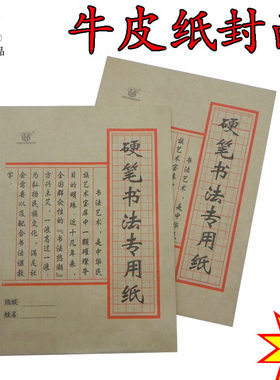 牛皮纸封面
品
硬笔书法专用纸
书法艺术,是中华民
硬笔书法专用纸
书法艺术,是中华民
族艺术宝库中一颗璀璨夺
目的明珠。近十几年来
全国群众性的『书法热潮』
方兴未艾,一浪高过一浪。
为弘扬民族文化,满足社
会需要以及配合书法课教
学
班级
姓名